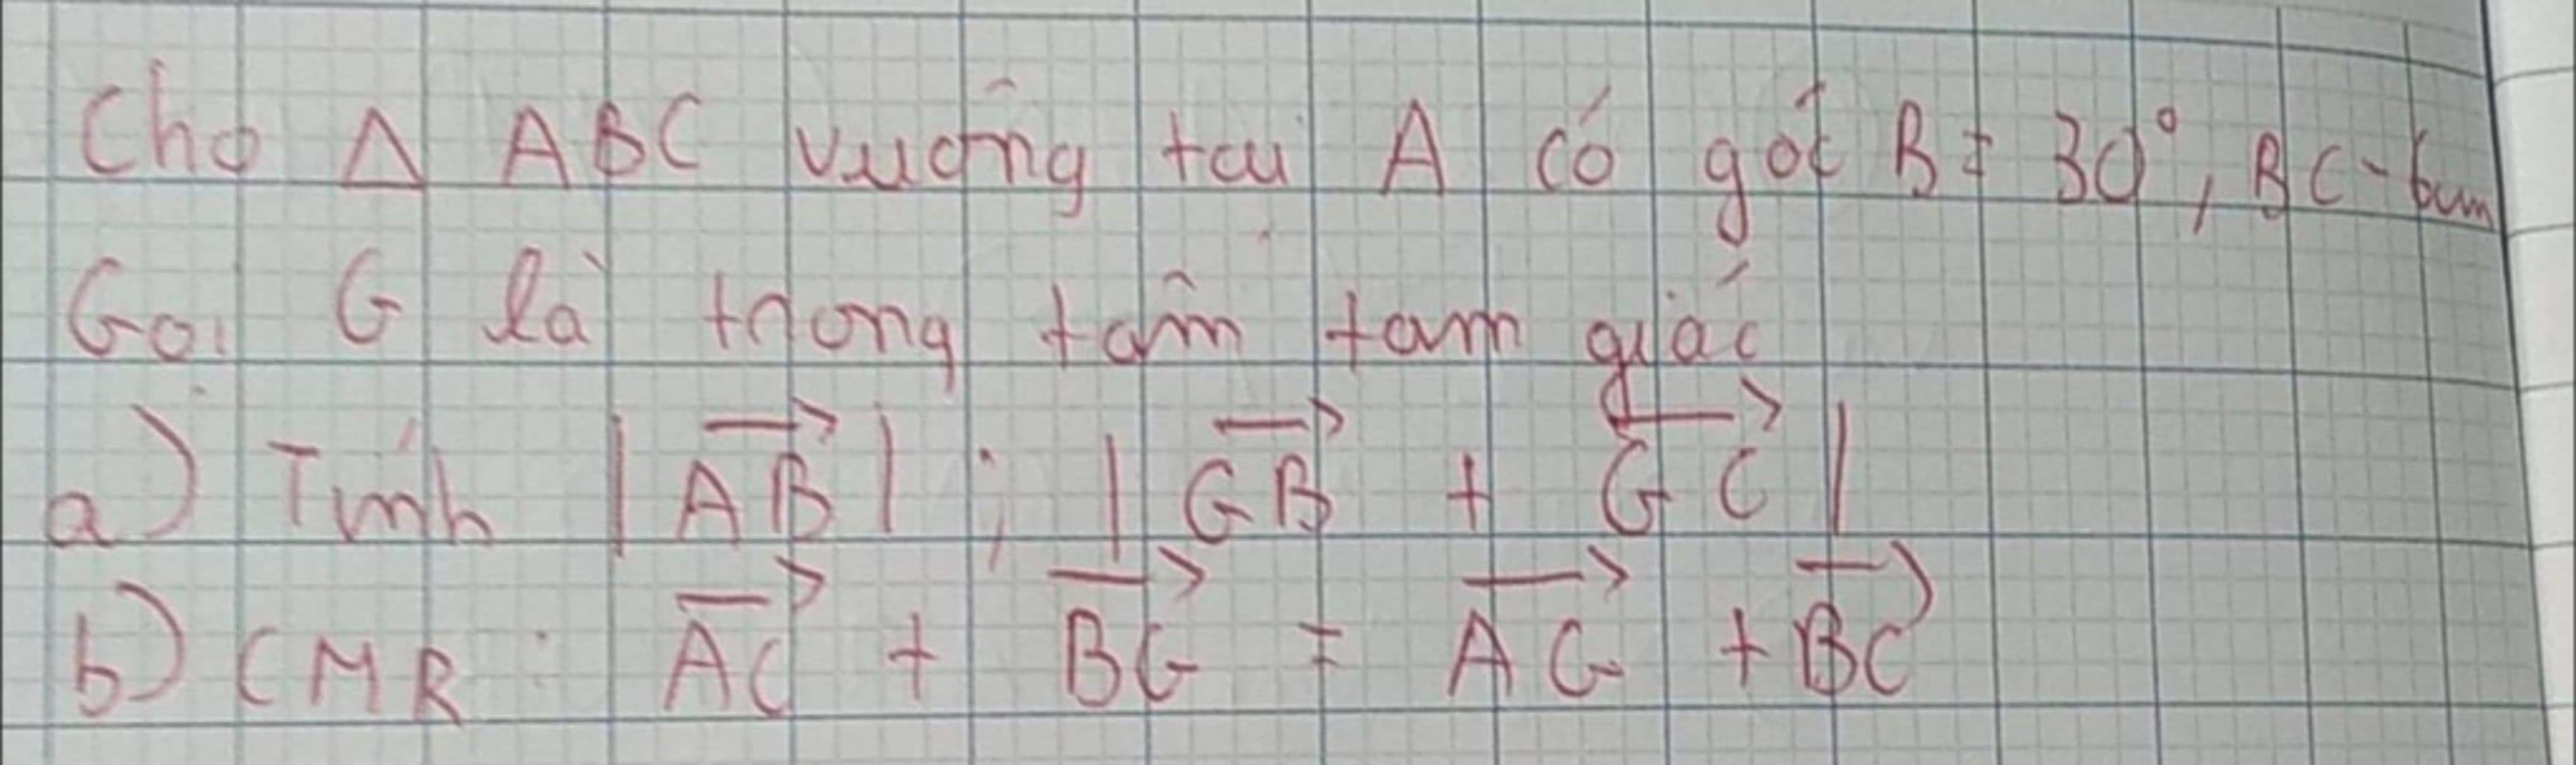 Cho Δ ABC vuông tại A có góc B = 30°, BC = 6cm
Gọi G là trọng tâm tam giác
a) Tính |\overrightarrow{AB}| ; |\overrightarrow{GB} + \overrightarrow{GC}|
b) CMR : \overrightarrow{AC} + \overrightarrow{BG} = \overrightarrow{AG} + \overrightarrow{BC}